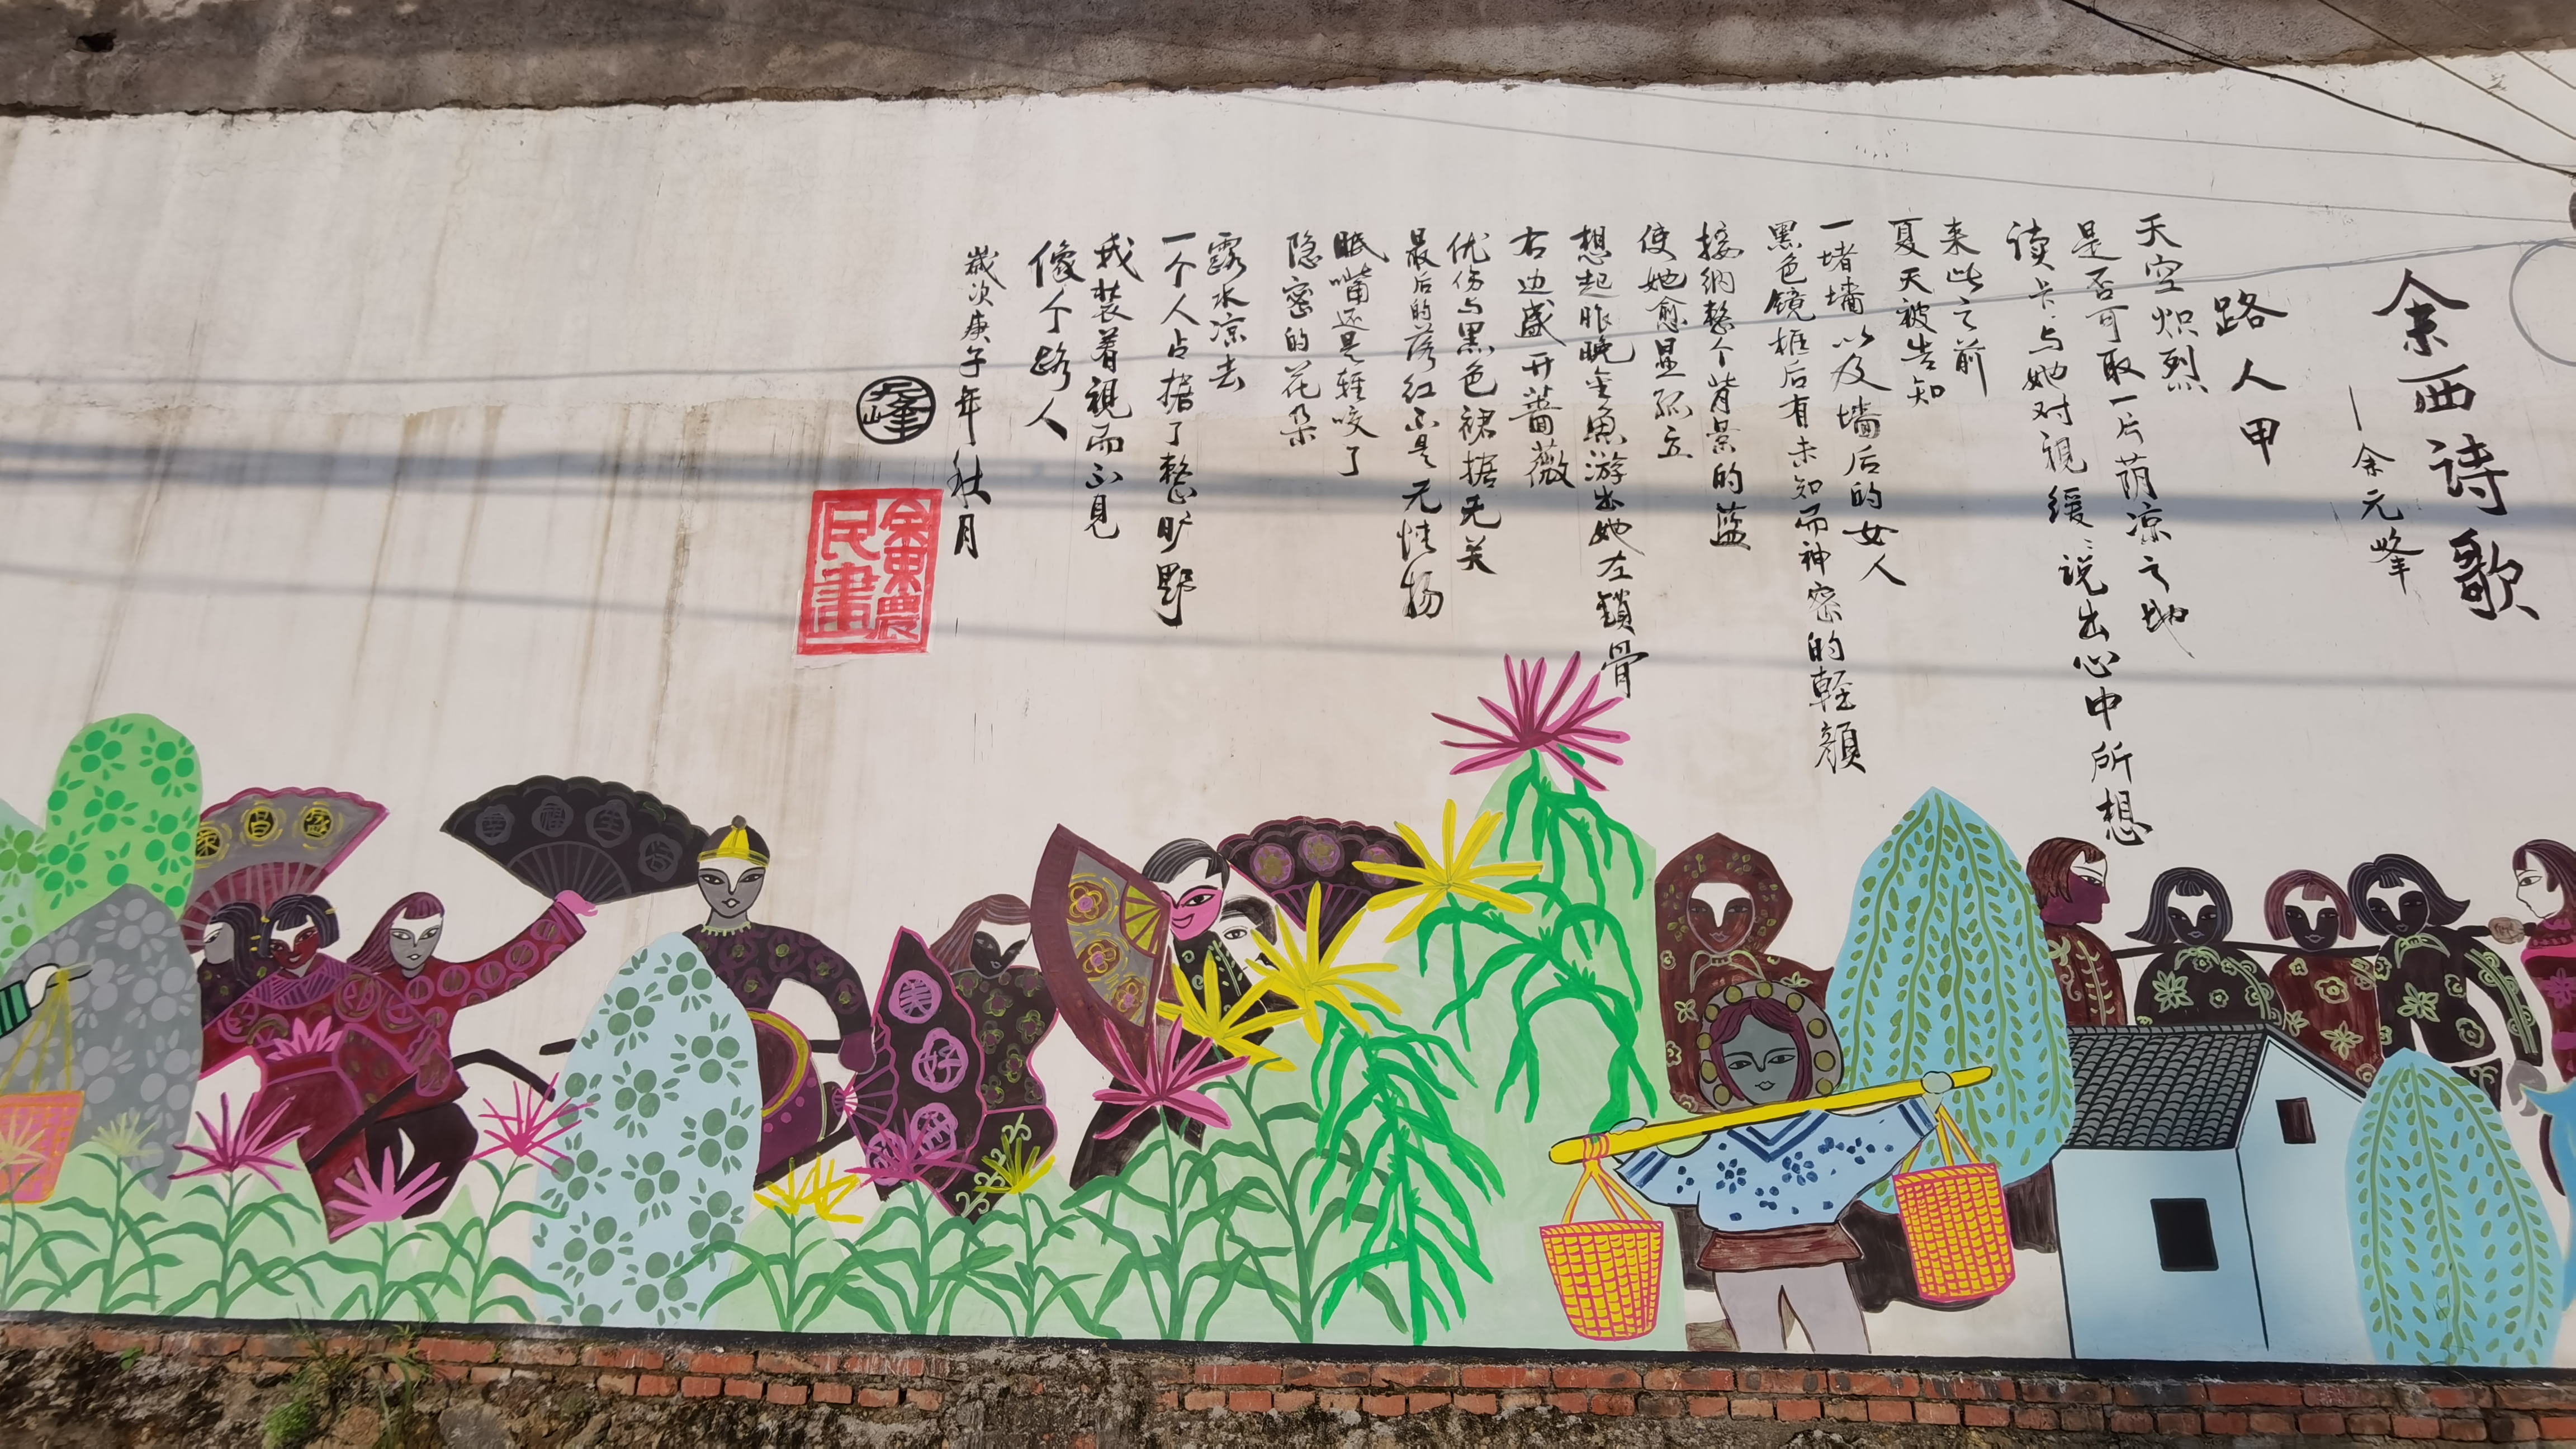 余西诗歌
——余元峰
路人甲
天空炽烈
是否可取一片荫凉之地
读卡、与她对視缓缓说出心中所想
来此之前
夏天被告知
一堵墙以及墙后的女人
黑色镜框后有未知而神密的轻颜
接纳整个背景的蓝
使她愈显孤立
想起昨晚金魚游出她左鎖骨
右边盛开薔薇
优伤与黑色裙摆无关
最后的落红不是无性物
眠嘴还是轻咬了
隐密的花朵
露水凉去
一个人占据了整旷野
我装着視而不見
像个路人
歲次庚子年秋月
元峰
余東農民畫
幸福生活
美好